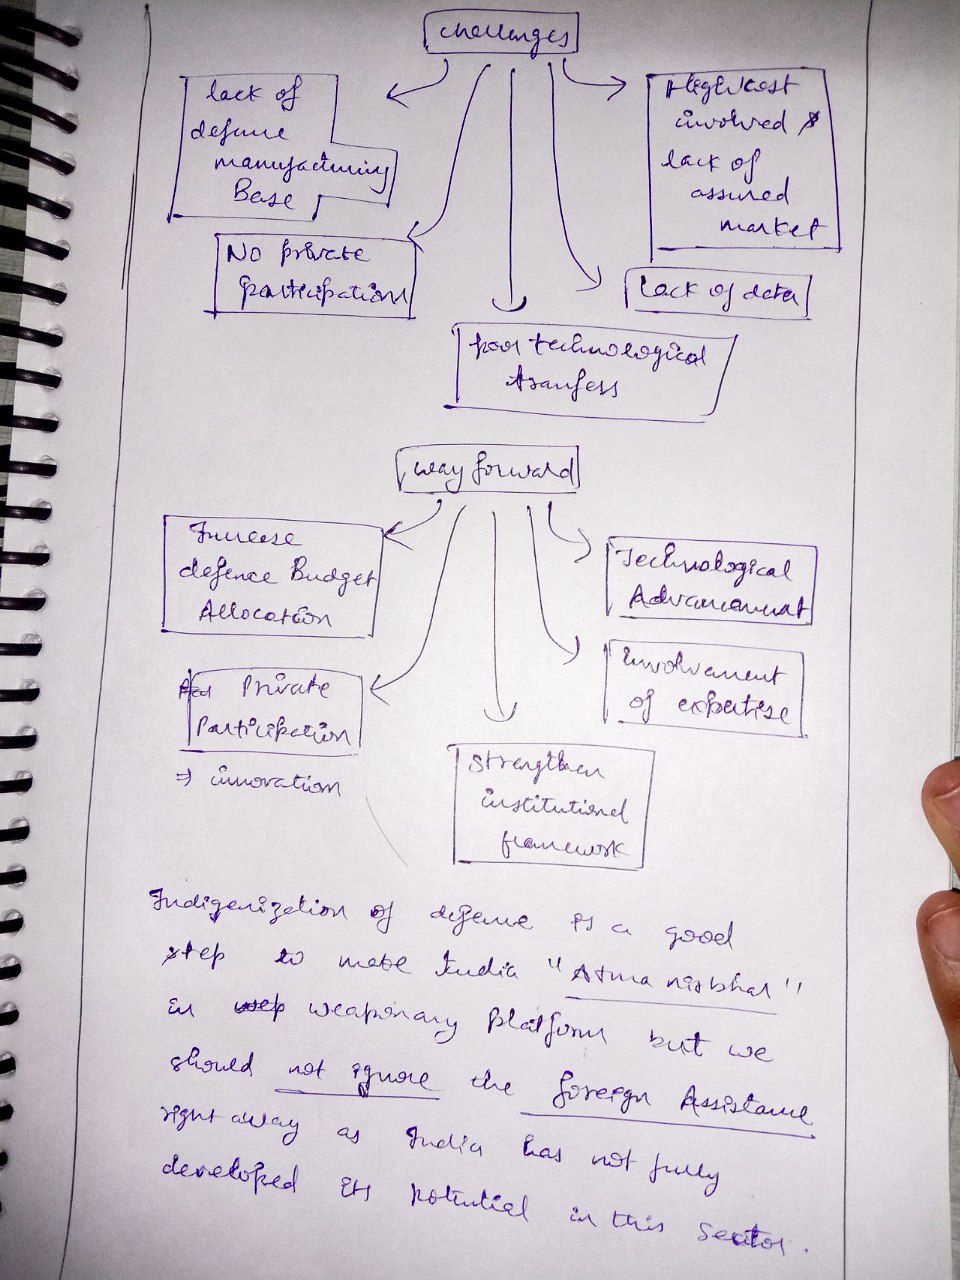 Challenges
lack of
defence
manufacturing
Base
High cost
involved &
lack of
assured
market
No private
participation
Lack of data
poor technological
transfers
way forward
Increase
defence Budget
Allocation
Technological
Advancement
Private
Participation
⇒ innovation
Involvement
of expertise
Strengthen
institutional
framework
Indigenization of defence is a good
step to make India "Atma nirbhar"
in weaponary platform but we
should not ignore the foreign Assistance
right away as India has not fully
developed its potential in this sector.